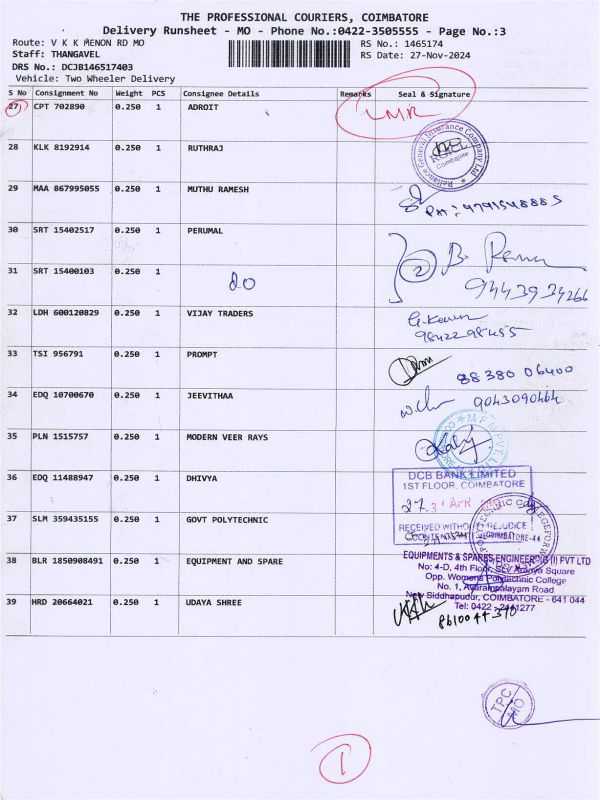 THE PROFESSIONAL COURIERS, COIMBATORE
Delivery Runsheet - MO - Phone No.:0422-3505555 - Page No.:3
Route: V K K MENON RD MO
RS No.: 1465174
Staff: THANGAVEL
RS Date: 27-Nov-2024
DRS No.: DCJB146517403
Vehicle: Two Wheeler Delivery
S No Consignment No Weight PCS Consignee Details Remarks Seal & Signature
27 CPT 702890 0.250 1 ADROIT
28 KLK 8192914 0.250 1 RUTHRAJ
Reliance General Insurance Company Ltd
Coimbatore
29 MAA 867995055 0.250 1 MUTHU RAMESH
30 SRT 15402517 0.250 1 PERUMAL
2
9443934266
31 SRT 15400103 0.250 1 do
32 LDH 600120829 0.250 1 VIJAY TRADERS
9842298455
33 TSI 956791 0.250 1 PROMPT
88380 06400
34 EDQ 10700670 0.250 1 JEEVITHAA
9043090464
35 PLN 1515757 0.250 1 MODERN VEER RAYS
36 EDQ 11488947 0.250 1 DHIVYA
DCB BANK LIMITED
1ST FLOOR, COIMBATORE
RECEIVED WITHOUT PREJUDICE
37 SLM 359435155 0.250 1 GOVT POLYTECHNIC
38 BLR 1850908491 0.250 1 EQUIPMENT AND SPARE
EQUIPMENTS & SPARES ENGINEERING (I) PVT LTD
No: 4-D, 4th Floor, Square
Opp. Womens Polytechnic College
No. 1, Avarampalayam Road
New Siddhapudur, COIMBATORE - 641 044
Tel: 0422 - 2441277
39 HRD 20664021 0.250 1 UDAYA SHREE
TPC
MO
1